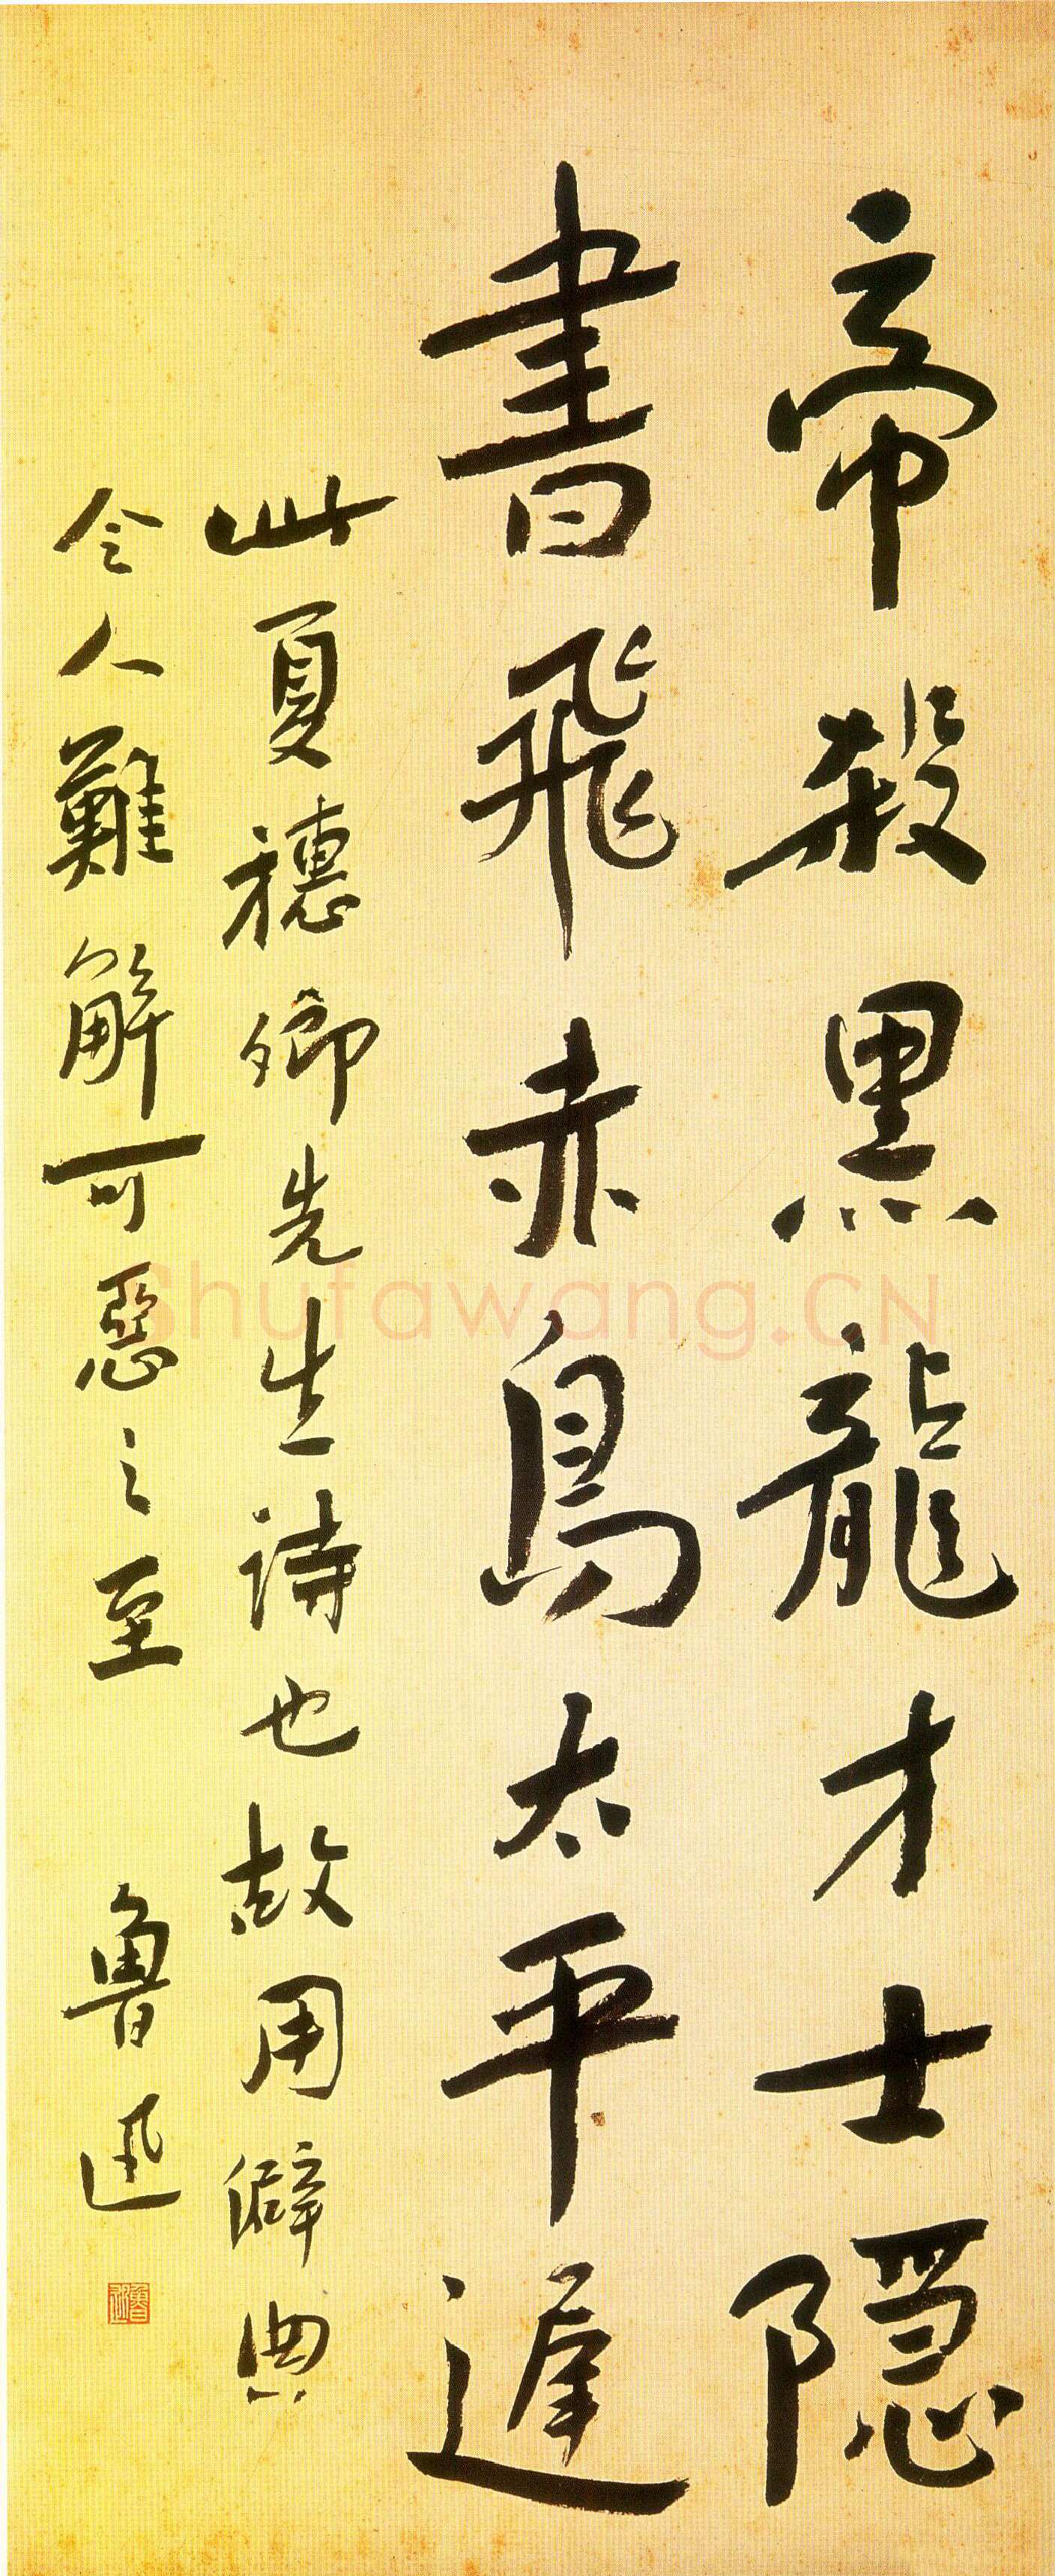 帝殺黑龍才士隱
書飛赤鳥太平遲
此夏穗卿先生詩也故用僻典
令人難解可惡之至
魯迅
魯迅
Shufawang.CN